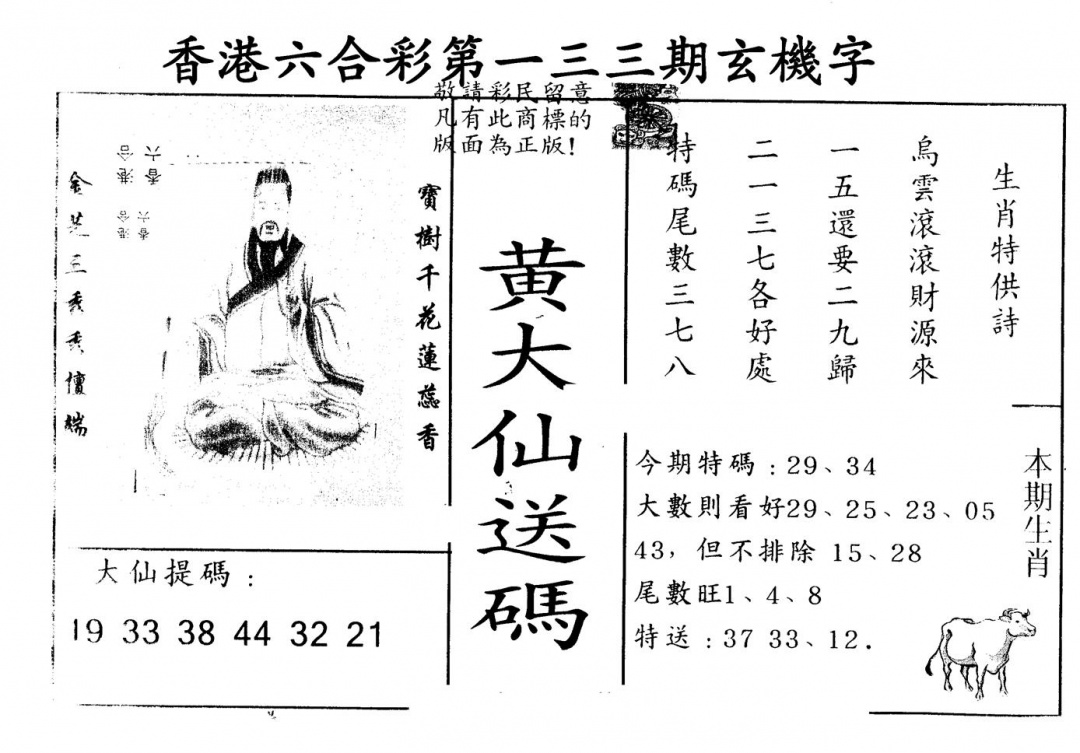 香港六合彩第一三三期玄機字
敬請彩民留意
凡有此商標的
版面為正版！
生肖特供詩
烏雲滾滾財源來
一五還要二九歸
二一三七各好處
特碼尾數三七八
寶樹千花蓮蕊香
黃大仙送碼
大仙提碼：
19 33 38 44 32 21
今期特碼：29、34
大數則看好29、25、23、05
43，但不排除 15、28
尾數旺1、4、8
特送：37 33、12．
本期生肖